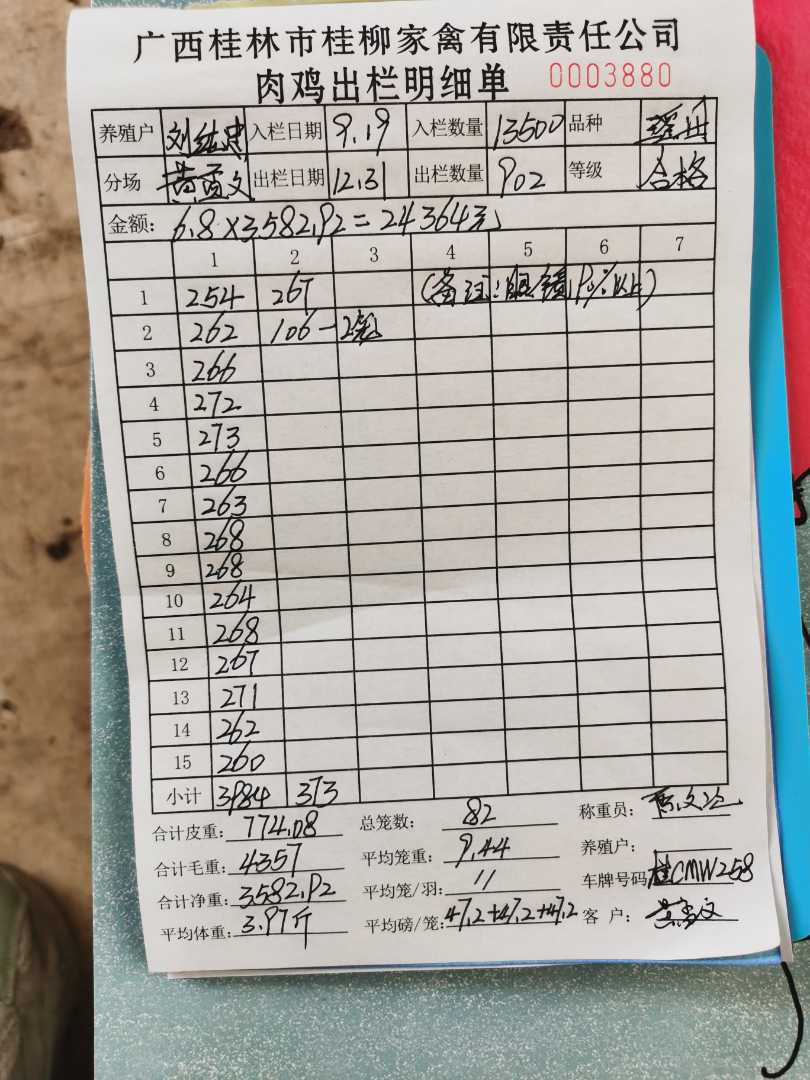 广西桂林市桂柳家禽有限责任公司
肉鸡出栏明细单 0003880
养殖户 刘 忠 入栏日期 9.19 入栏数量 13500 品种
分场 黄 文 出栏日期 12.31 出栏数量 902 等级 合格
金额: 6.8×3582.92=24364元
1 2 3 4 5 6 7
1 254 267 (备注: 90%以上)
2 262 106-2笼
3 266
4 272
5 273
6 266
7 263
8 268
9 268
10 264
11 268
12 267
13 271
14 262
15 260
小计 3984 373
合计皮重: 774.08 总笼数: 82 称重员: 文
合计毛重: 4357 平均笼重: 9.44 养殖户:
合计净重: 3582.92 平均笼/羽: 11 车牌号码 桂CMW258
平均体重: 3.97斤 平均磅/笼: 47.2+47.2+47.2 客 户: 黄 文